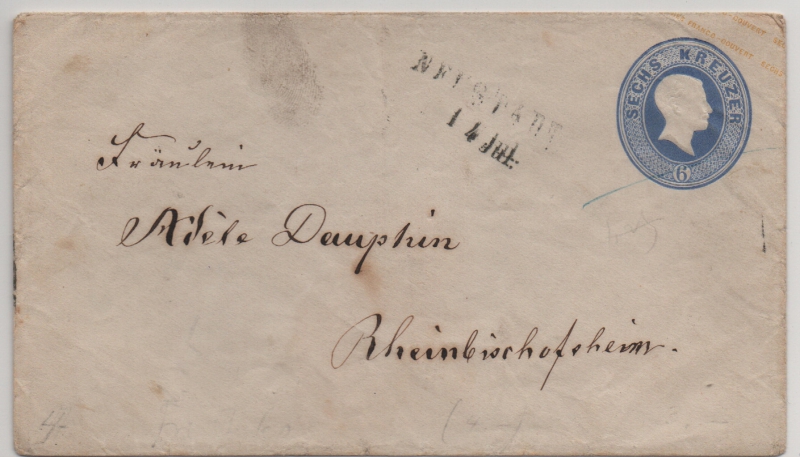 NEUSTADT
14 JUL.
SECHS KREUZER
6
Fräulein
Adèle Dauphin
Rheinbischofsheim.